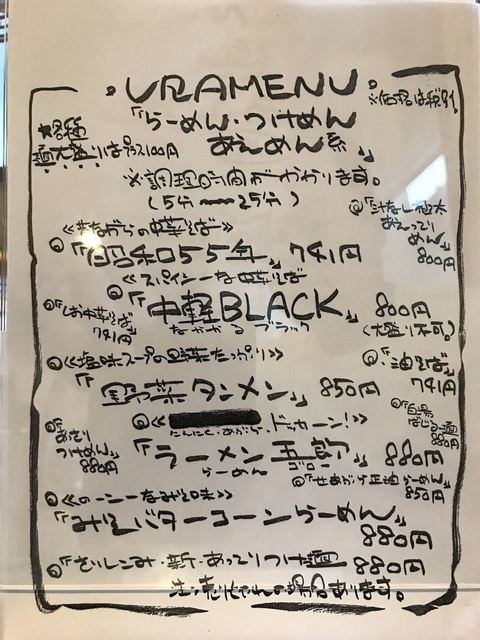 URAMENU
※価格は税別
「らーめん・つけめん
あえめん系」
★各種
麺大盛りはプラス100円
※調理時間がかかります。
(5分〜25分)
≪昔ながらの中華そば≫
◎「昭和55年」 741円
◎「汁なし極太
あえってり
めん」
800円
≪スパイシーな中華そば≫
◎「中軽BLACK」 800円
なかがる ブラック
(大盛り不可。)
◎「しお中華そば」
741円
◎≪塩味スープの野菜たっぷり≫
「野菜タンメン」 850円
◎「油そば」
741円
◎≪ ドッカーン!≫
にんにく・あぶら
「ラーメン五郎」 880円
らーめん ゴロー
◎「白湯
880円
◎「あさり
つけめん」
880円
◎「せあぶら正油らーめん」
850円
◎≪のーこーなみそ味≫
「みそバターコーンらーめん」
880円
◎「さいしこみ・新・あってりつけ麺」 880円
注:売り切れの場合あります。